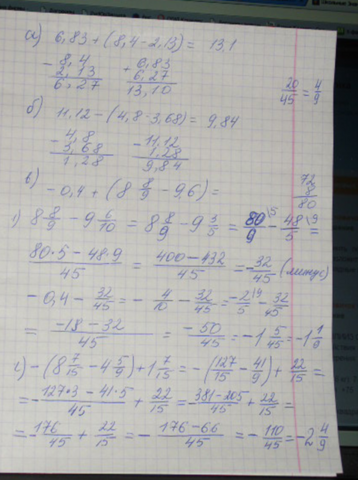 а) 6,83 + (8,4 - 2,13) = 13,1
- 8,4 + 6,83
2,13 6,27
6,27 13,10
20/45 = 4/9
б) 11,12 - (4,8 - 3,68) = 9,84
- 4,8 - 11,12
3,68 1,28
1,28 9,84
в) - 0,4 + (8 8/9 - 9,6) =
72
8
80
1) 8 8/9 - 9 6/10 = 8 8/9 - 9 3/5 = 80/9 \5 - 48/5 \9 =
80·5 - 48·9/45 = 400 - 432/45 = -32/45 (минус)
- 0,4 - 32/45 = - 4/10 - 32/45 = -2/5 \9 - 32/45
= -18 - 32/45 = -50/45 = -1 5/45 = -1 1/9
г) -(8 7/15 - 4 5/9) + 1 7/15 = -(127/15 - 41/9) + 22/15 =
= -127·3 - 41·5/45 + 22/15 = -381 - 205/45 + 22/15 =
= -176/45 + 22/15 = - 176 - 66/45 = - 110/45 = -2 4/9